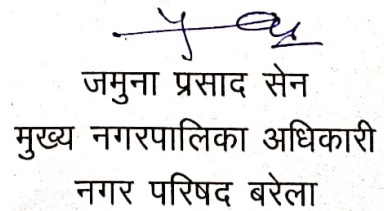 जमुना प्रसाद सेन
मुख्य नगरपालिका अधिकारी
नगर परिषद बरेला